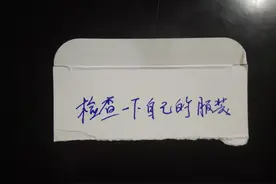 检查一下自己的服装